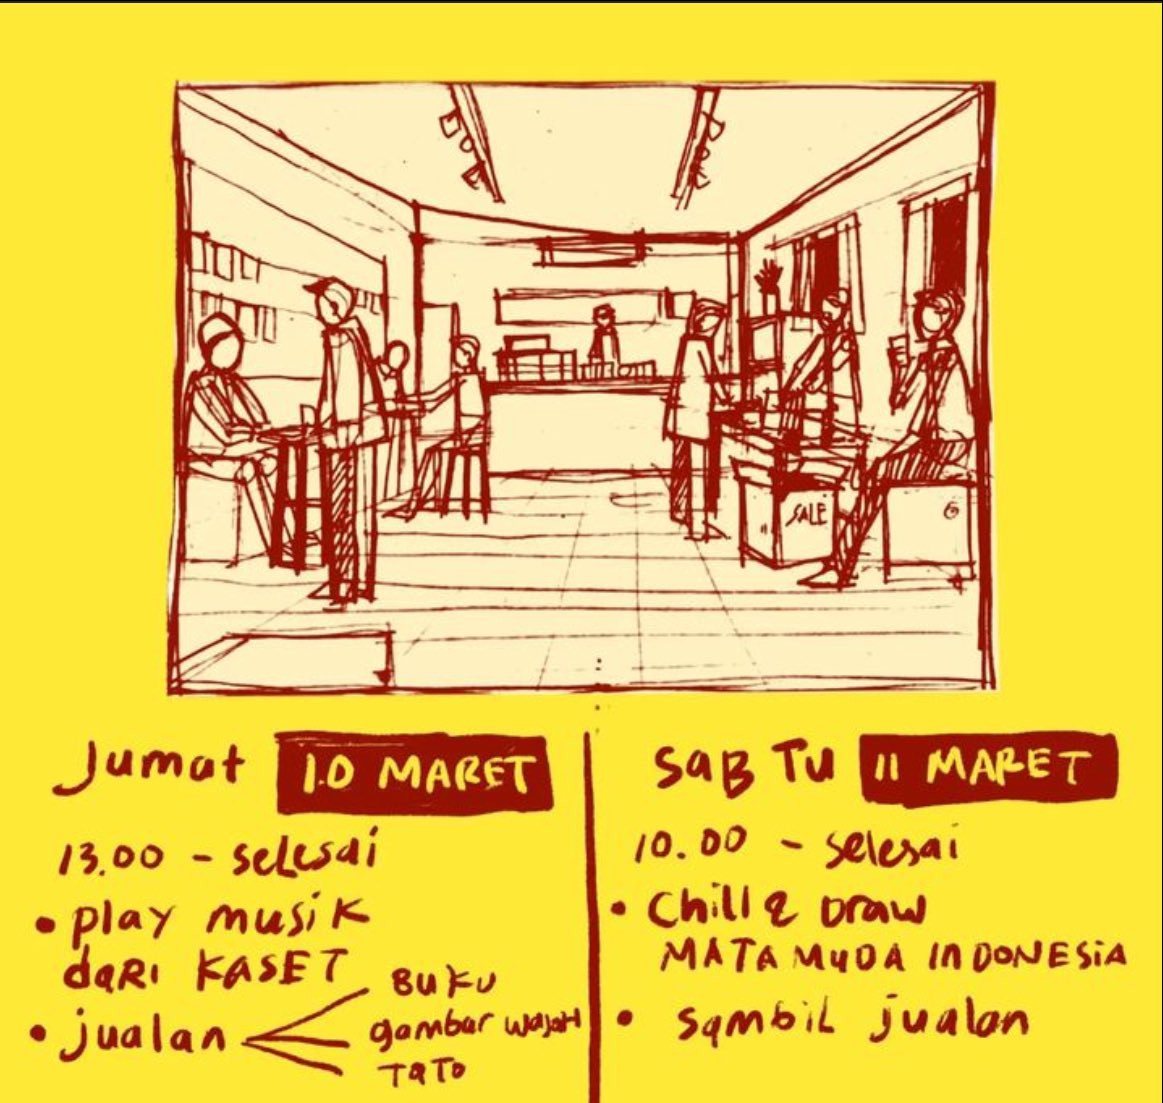 SALE
Jumat 10 MARET
13.00 - selesai
• play musik
dari KASET
• jualan
BUKU
gambar wajah
TATO
SABTU 11 MARET
10.00 - selesai
• Chill & Draw
MATA MUDA INDONESIA
• sambil jualan